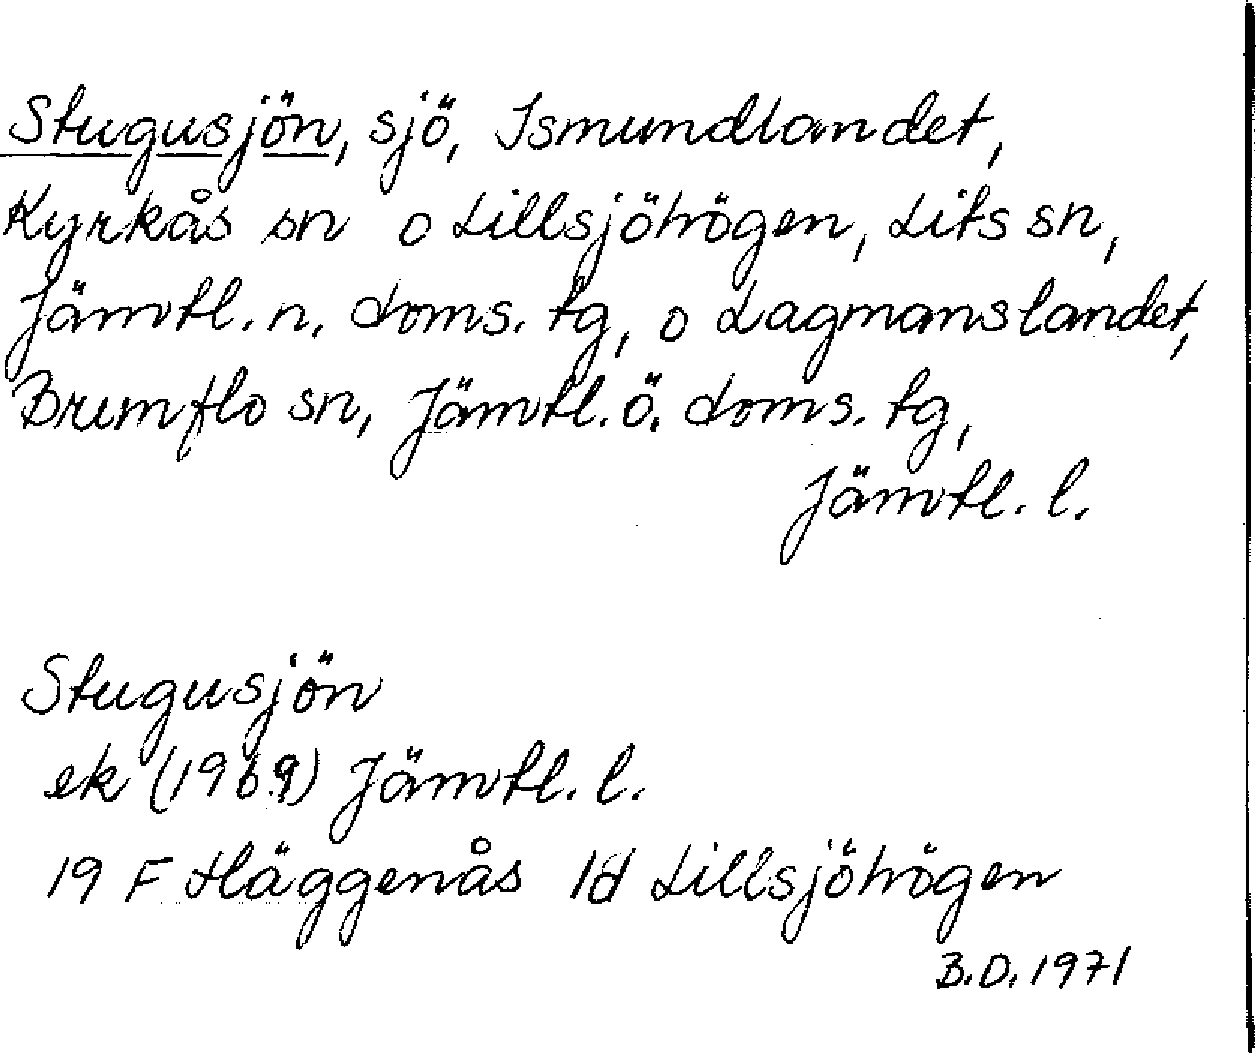 Stugusjön, sjö, Ismundlandet,
Kyrkås sn o Lillsjöhögen, Lits sn,
Jämtl. n. doms. tg, o Lagmanslandet,
Brunflo sn, Jämtl. ö. doms. tg,
Jämtl. l.
Stugusjön
ek (1969) Jämtl. l.
19 F Häggenås 1d Lillsjöhögen
B.D. 1971